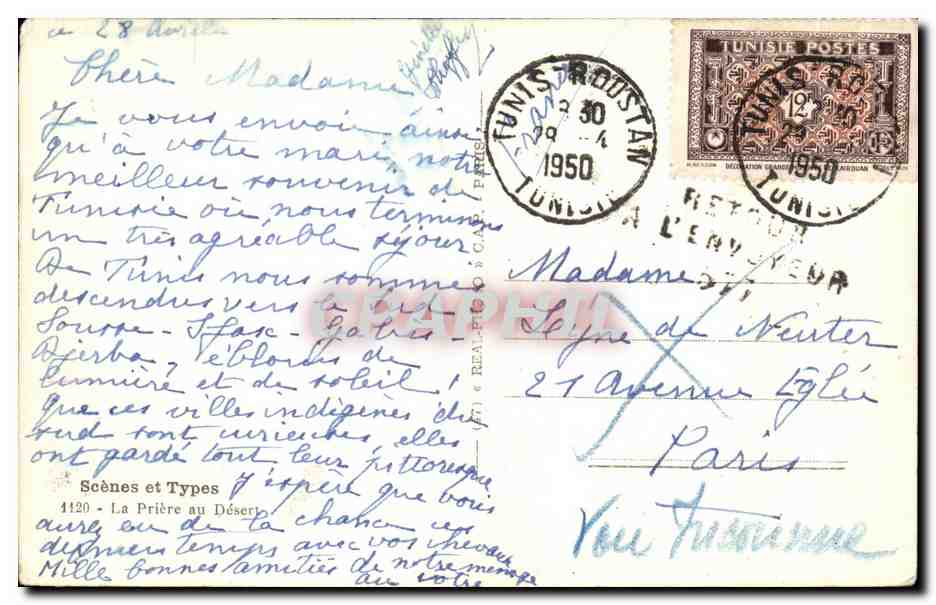 28 Avril
Chère Madame
Je vous envoie ainsi
qu'à votre mari notre
meilleur souvenir de
Tunisie où nous terminons
un très agréable séjour
De Tunis nous sommes
descendus vers le Sud -
Sousse - Sfax - Gabès -
Djerba, éblouis de
lumière et de soleil !
Que ces villes indigènes du
sud sont curieuses, elles
ont gardé tout leur pittoresque
J'espère que vous
aurez eu de la chance ces
derniers temps avec vos chevaux
Mille bonnes amitiés de notre ménage
au vôtre
Scènes et Types
1120 - La Prière au Désert
« REAL-PHOTO » C.A.P. PARIS
TUNIS-ROUSTAN
8 30
28 -4
1950
TUNISIE
TUNISIE POSTES
12F
TUNIS-RO
1950
TUNISIE
RETOUR
A L'ENVOYEUR
Madame
Leyne de Neuter
21 Avenue Eglée
Paris
Voir Inconnue
CRAPHIL